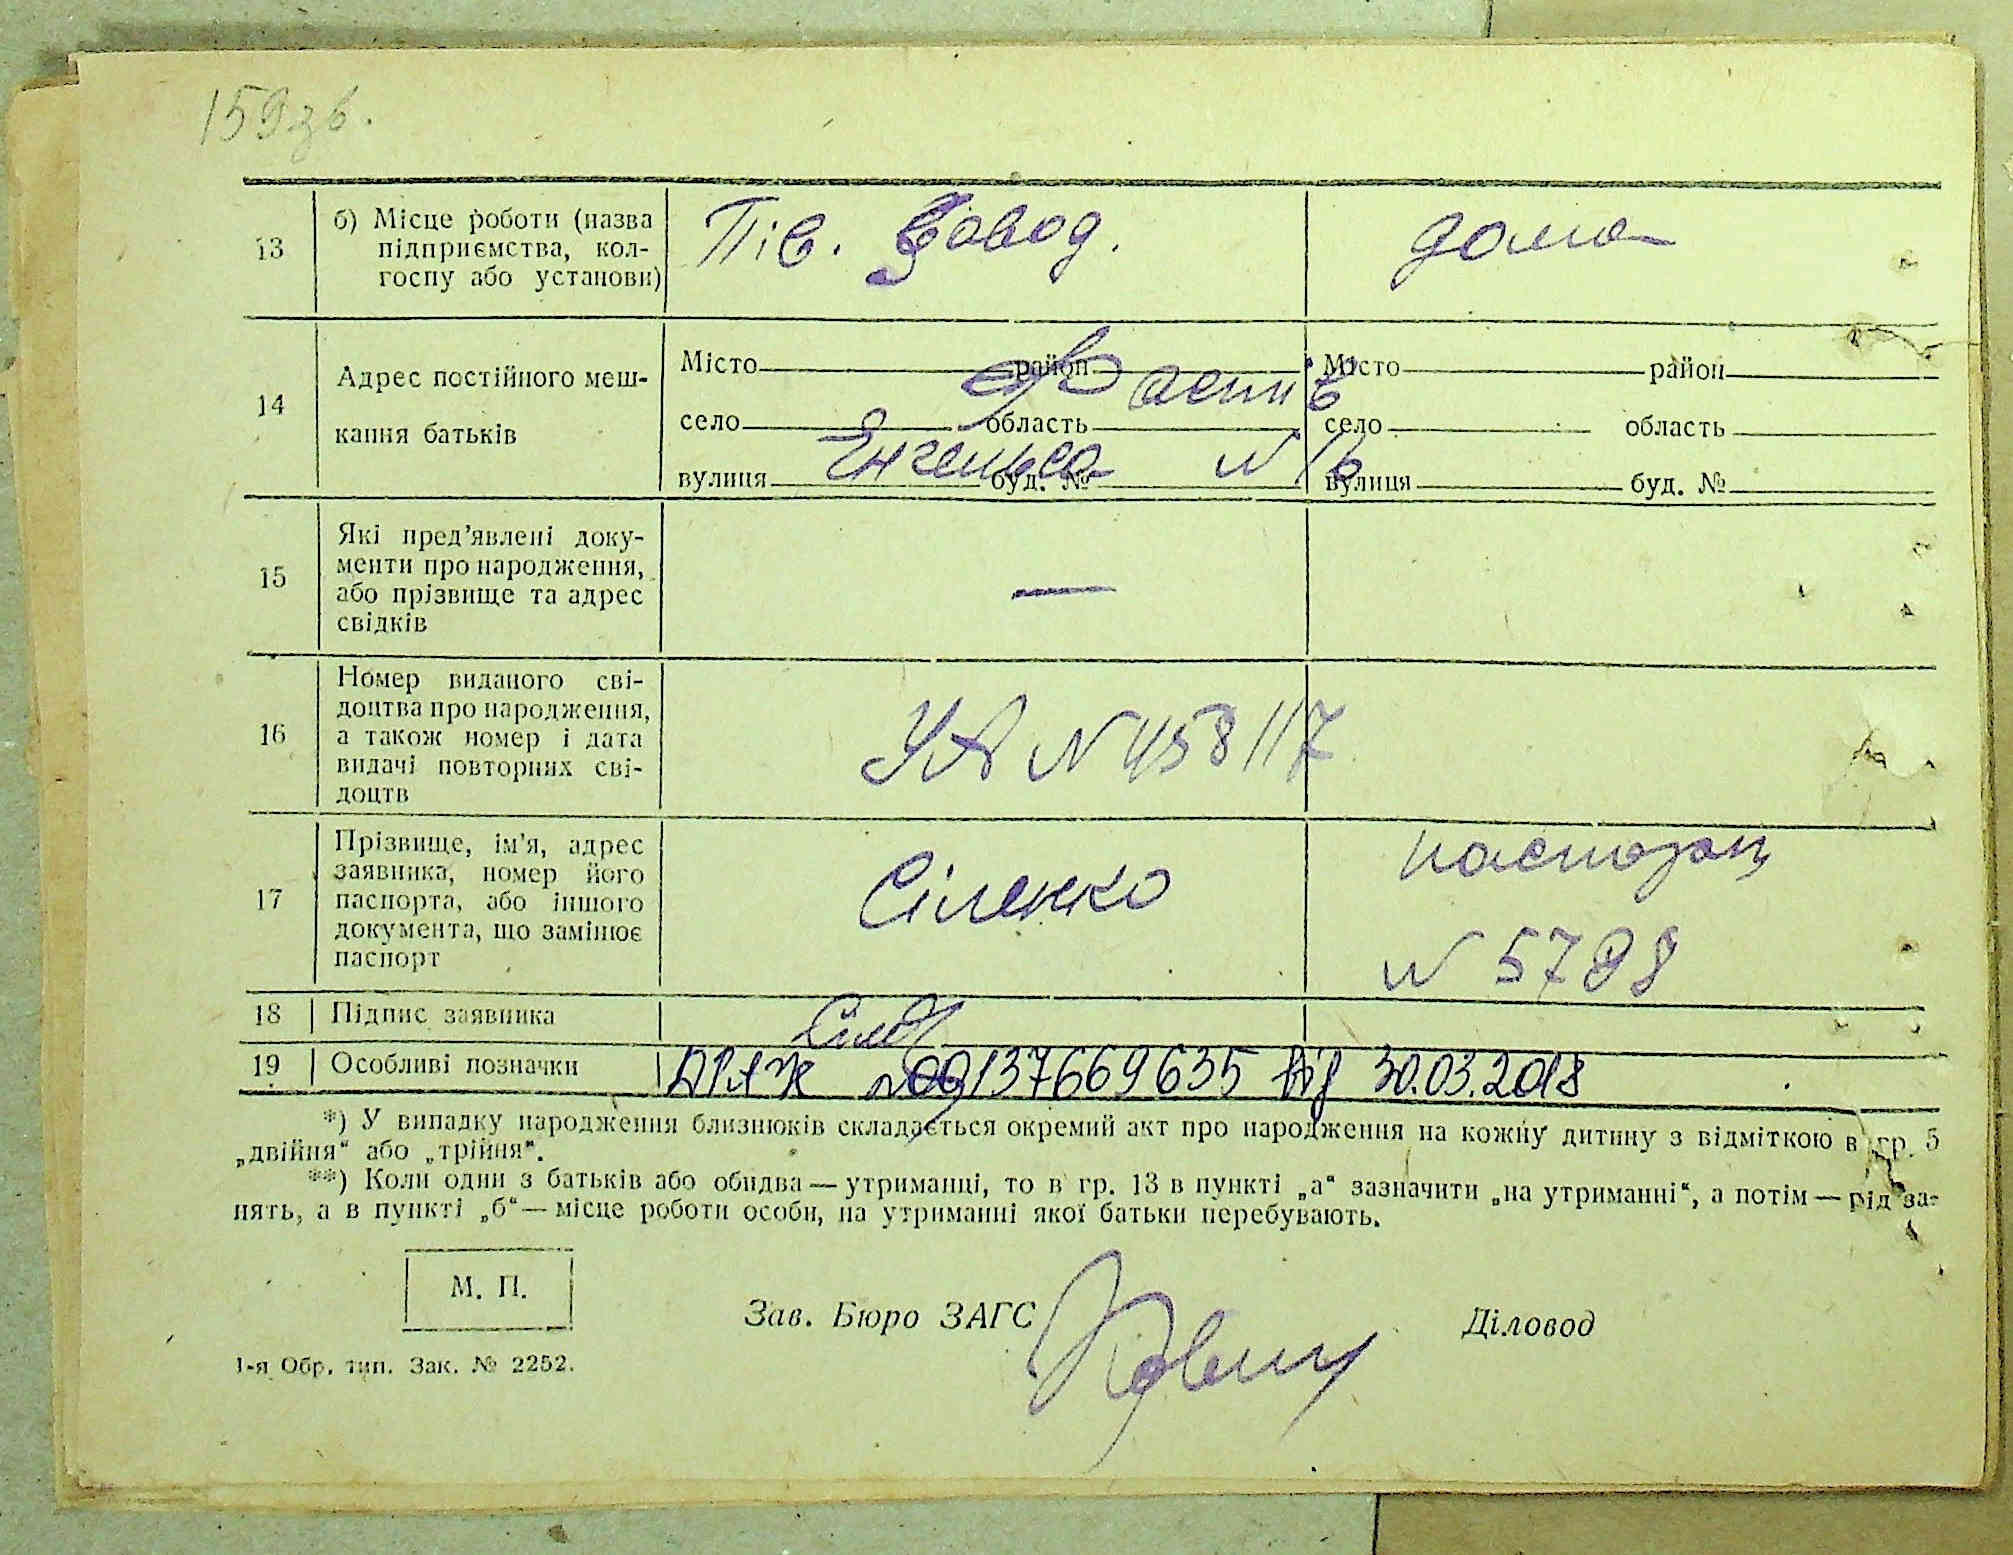 159зв.
13
б) Місце роботи (назва
підприємства, кол-
госпу або установи)
Пів. Завод.
дома
14
Адрес постійного меш-
кання батьків
Місто район
село область
вулиця буд. №
Фастів
Енгельса N 16
Місто район
село область
вулиця буд. №
15
Які пред’явлені доку-
менти про народження,
або прізвище та адрес
свідків
—
16
Номер виданого сві-
доцтва про народження,
а також номер і дата
видачі повторних сві-
доцтв
УА N 458117
17
Прізвище, ім’я, адрес
заявника, номер його
паспорта, або іншого
документа, що замінює
паспорт
Сіленко
паспорт
N 5798
18
Підпис заявника
19
Особливі позначки
ДРАЖ №00137669635 від 30.03.2018
*) У випадку народження близнюків складається окремий акт про народження на кожну дитину з відміткою в гр. 5
„двійня“ або „трійня“.
**) Коли один з батьків або обидва — утриманці, то в гр. 13 в пункті „а“ зазначити „на утриманні“, а потім — рід за-
нять, а в пункті „б“ — місце роботи особи, на утриманні якої батьки перебувають.
М. П.
Зав. Бюро ЗАГС
Діловод
1-я Обр. тип. Зак. № 2252.